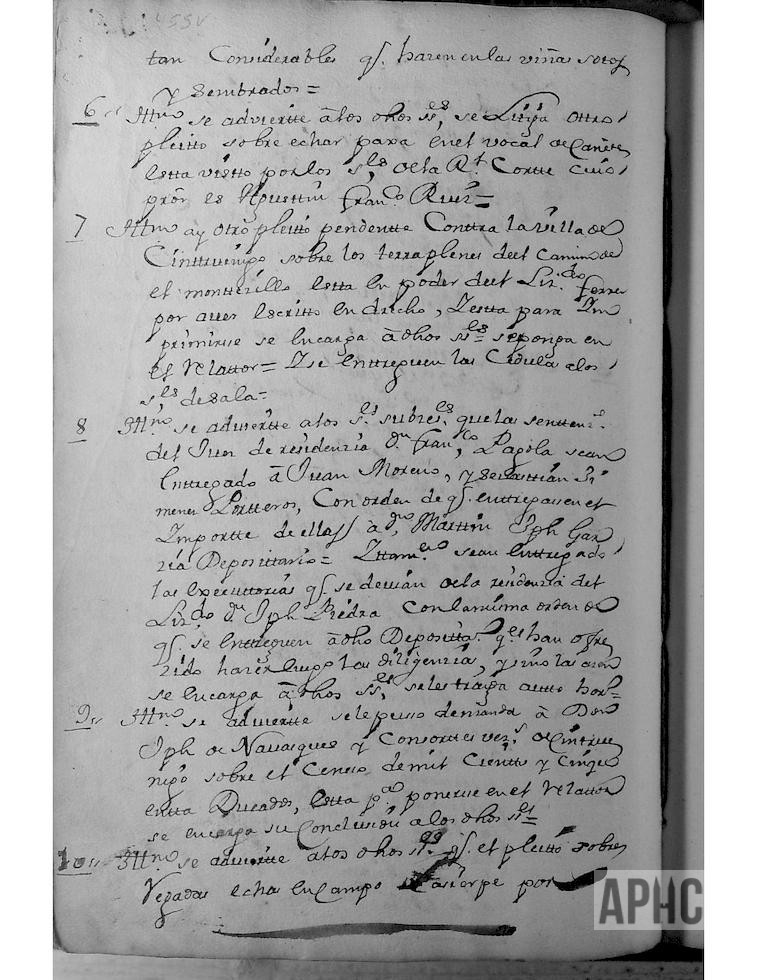 455v
tan Considerables q̄. haren en las viñas sotos
y sembrados =
6 Ittn̄o se adviertte â los dhos ss.es, se Litiga ottro
pleitto sobre echar para en el vocal de Cañete
estta vistto por los s.les de la R.l Cortte cuio
prōr es Agusttin fran.co Ruiz =
7 Ittn̄o ay otro pleitto pendentte Conttra la villa de
Cinttruenigo sobre los terraplenes del Camino de
el montterillo estta en poder del Liz.do ferrer
por aver escritto en dr̄cho, y estta para Im
primirse se encarga â dhos ss.les se ponga en
el Relattor = Y se enttreguen las Cedula a los
s.les de sala =
8 Itt.no se adviertte a los s.es subces.es que las sentten.s
del Juez de residenzia D.n fran.co Pagola sean
enttregado â Juan Moreno, y Sebasttian Xi
menez Portteros, Con orden de q̄. enttregasen el
Importte de ellas a D.n Marttin Jph Gar
zia Deposittario = Ittam.no sean enttregado
las executtorias q̄. se devian de la residenzia del
Liz.do D.n Jph Piedra Con la misma orden de
q̄. se enttreguen â dho Depositta.o q.es han ofre
zido hazer luego las diligenzias, y sino las azen
se encarga â dhos ss.es se les traiga autto hor.s=
9 Itt.no se adviertte se le puso demanda â Don
Jph de Navasques y Consorttes vez.s de Cinttrue
nigo sobre el Censo de mil Cientto y Cinqu
entta Ducados, estta p.a ponerse en el Relattor
se encarga su Conclusion a los dhos ss.es=
10 Itt.no se adviertte a los dhos ss.es q̄. el pleitto sobre
Vegadas echas en Campo Lasierpe por
APHC